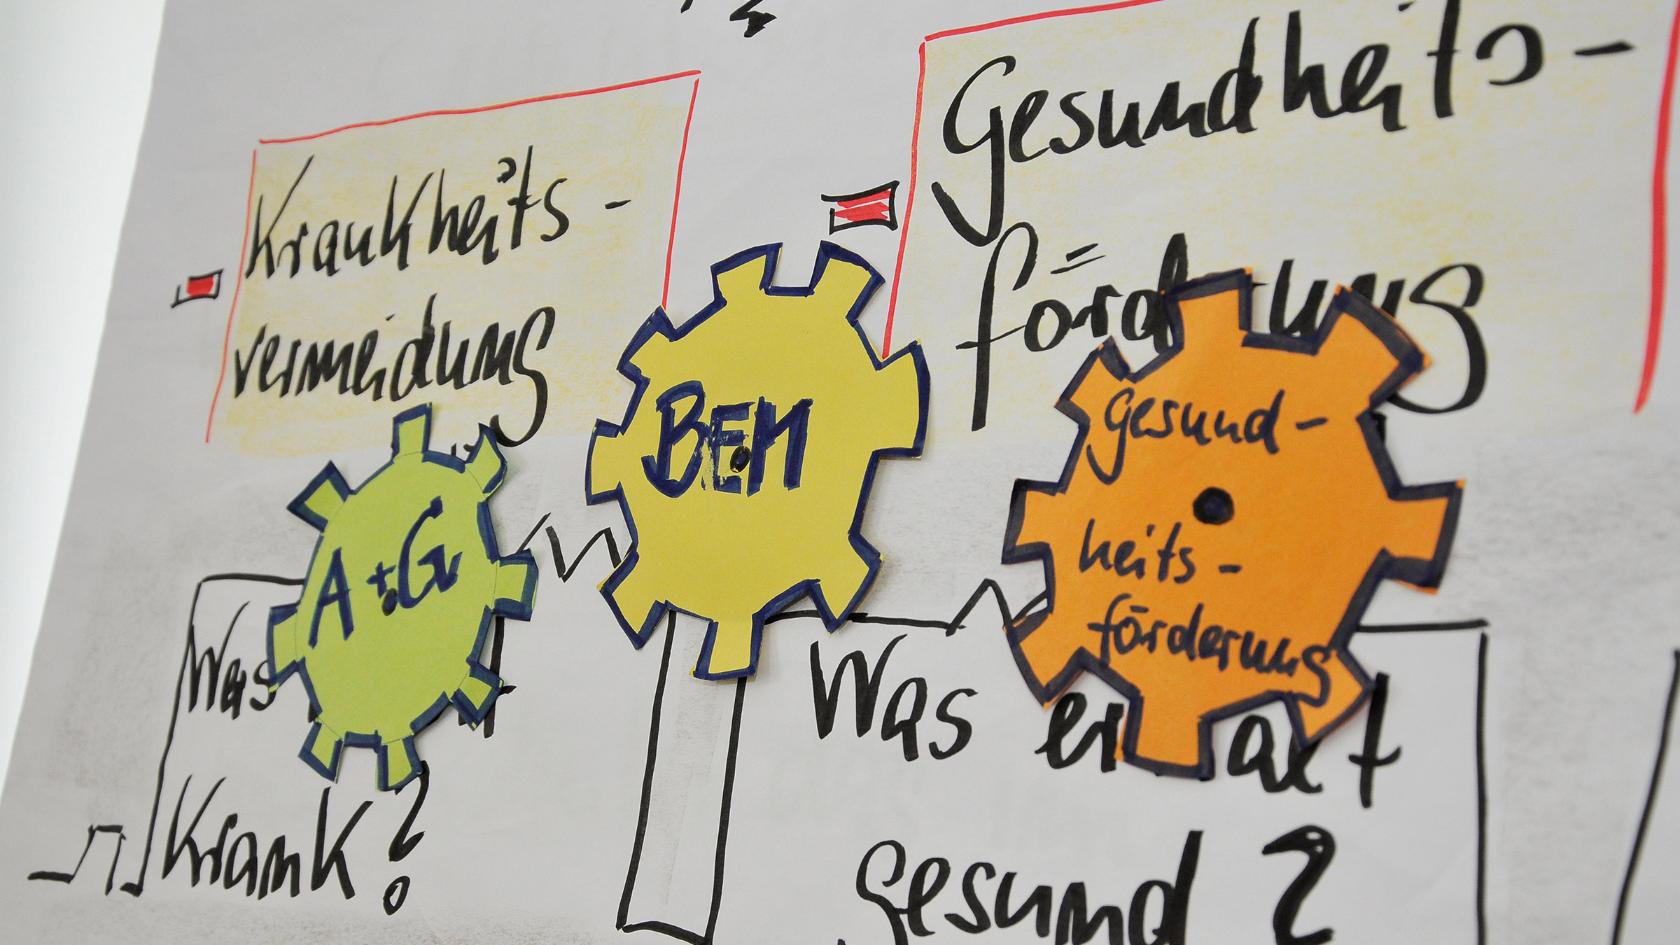 Krankheits-
vermeidung
Gesundheits-
förderung
A+G
BEM
gesund-
heits-
förderung
Was
Krank?
Was erhält
gesund?